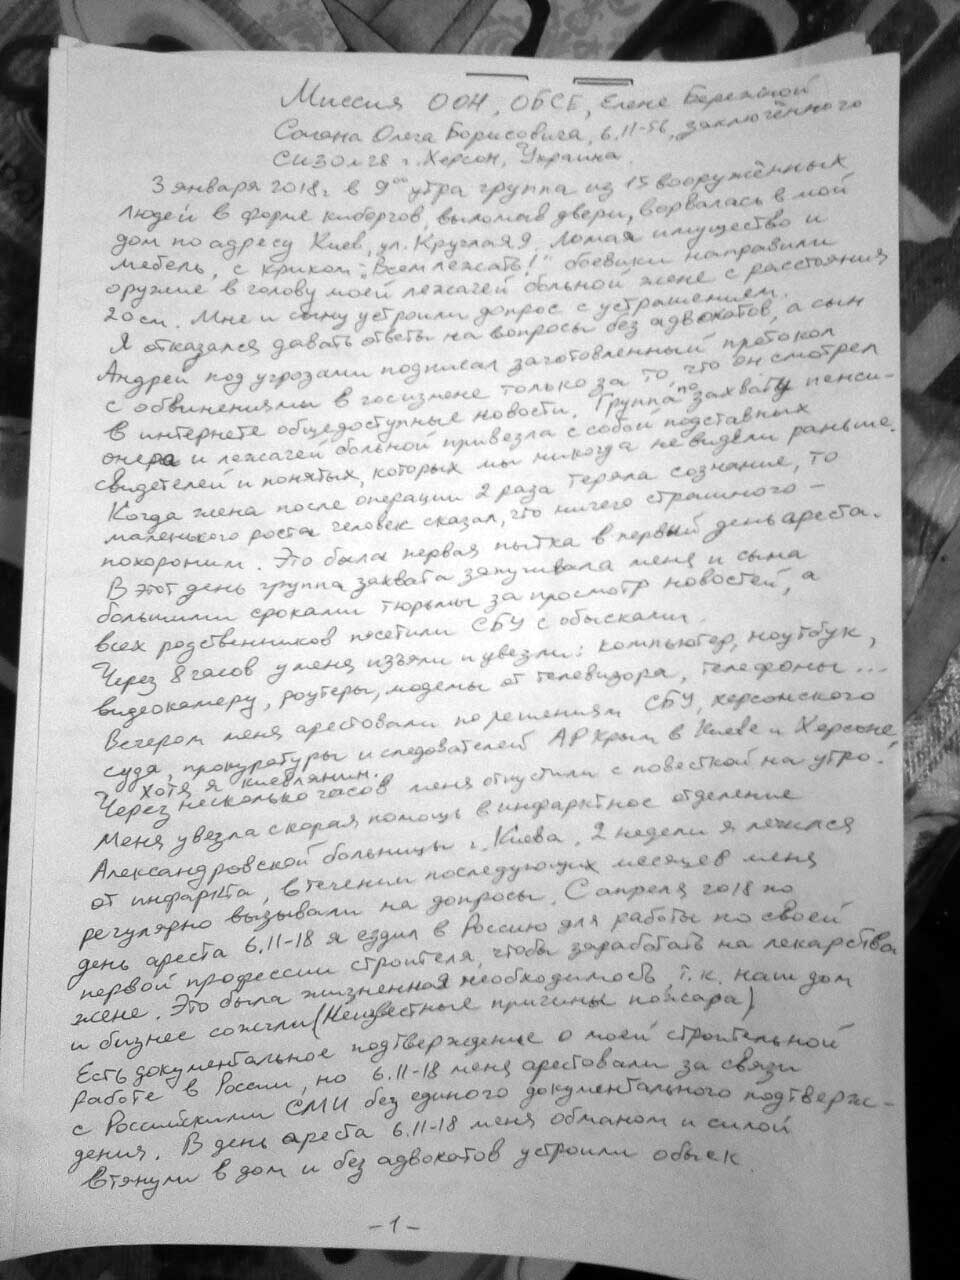 Миссия ООН, ОБСЕ, Елене Бережной
Сагана Олега Борисовича, 6.11-56, заключённого
СИЗО № 28 г. Херсон, Украина.
3 января 2018г. в 9⁰⁰ утра группа из 15 вооружённых
людей в форме киборгов, выломав двери, ворвалась в мой
дом по адресу Киев, ул. Круглая 9. Ломая имущество и
мебель, с криком: „Всем лежать!" боевики направили
оружие в голову моей лежачей больной жене с расстояния
20 см. Мне и сыну устроили допрос с устрашением.
Я отказался давать ответы на вопросы без адвокатов, а сын
Андрей под угрозами подписал заготовленный протокол
с обвинениями в госизмене только за то что он смотрел
в интернете общедоступные новости. Группа по захвату пенси-
онера и лежачей больной привезла с собой подставных
свидетелей и понятых, которых мы никогда не видели раньше.
Когда жена после операции 2 раза теряла сознание, то
маленького роста человек сказал, что ничего страшного –
похороним. Это была первая пытка в первый день ареста.
В этот день группа захвата запугивала меня и сына
большими сроками тюрьмы за просмотр новостей, а
всех родственников посетили СБУ с обысками.
Через 8 часов у меня изъяли и увезли: компьютер, ноутбук,
видеокамеру, роутеры, модемы от телевизора, телефоны...
Вечером меня арестовали по решениям СБУ, херсонского
суда, прокуратуры и следователей АР Крым в Киеве и Херсоне,
хотя я киевлянин.
Через несколько часов меня отпустили с повесткой на утро.
Меня увезла скорая помощь в инфарктное отделение
Александровской больницы г. Киева. 2 недели я лечился
от инфаркта, в течении последующих месяцев меня
регулярно вызывали на допросы. С апреля 2018 по
день ареста 6.11-18 я ездил в Россию для работы по своей
первой профессии строителя, чтобы заработать на лекарства
жене. Это была жизненная необходимость, т.к. наш дом
и бизнес сожгли (Неизвестные причины пожара)
Есть документальное подтверждение о моей строительной
работе в России, но 6.11-18 меня арестовали за связи
с Российскими СМИ без единого документального подтверж-
дения. В день ареста 6.11-18 меня обманом и силой
втянули в дом и без адвокатов устроили обыск.
-1-